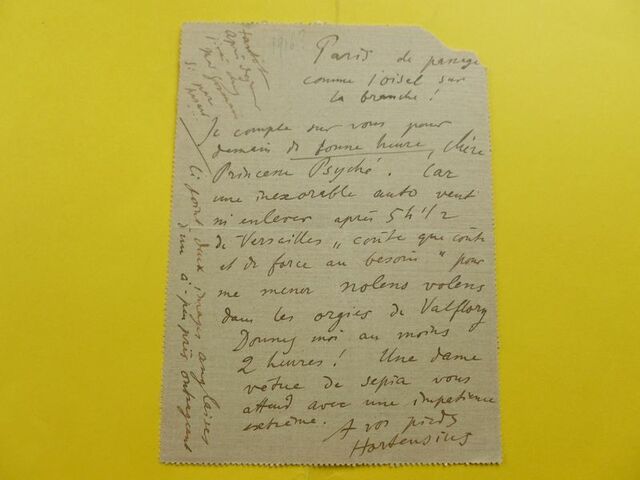 1916?
Paris de passage
comme l'oiseau sur
la branche !
Je compte sur vous pour
demain de bonne heure, chère
Princesse Psyché. Car
une inexorable auto vient
m'enlever après 5 h 1/2
de Versailles "coûte que coûte
et de force au besoin" pour
me mener nolens volens
dans les orgies de Valflory
Donnez moi au moins
2 heures ! Une dame
vêtue de sepia vous
attend avec une impatience
extrême. A vos pieds
Hortensius
Ci joint deux images anglaises
d'un à-peu-près outrageant
après